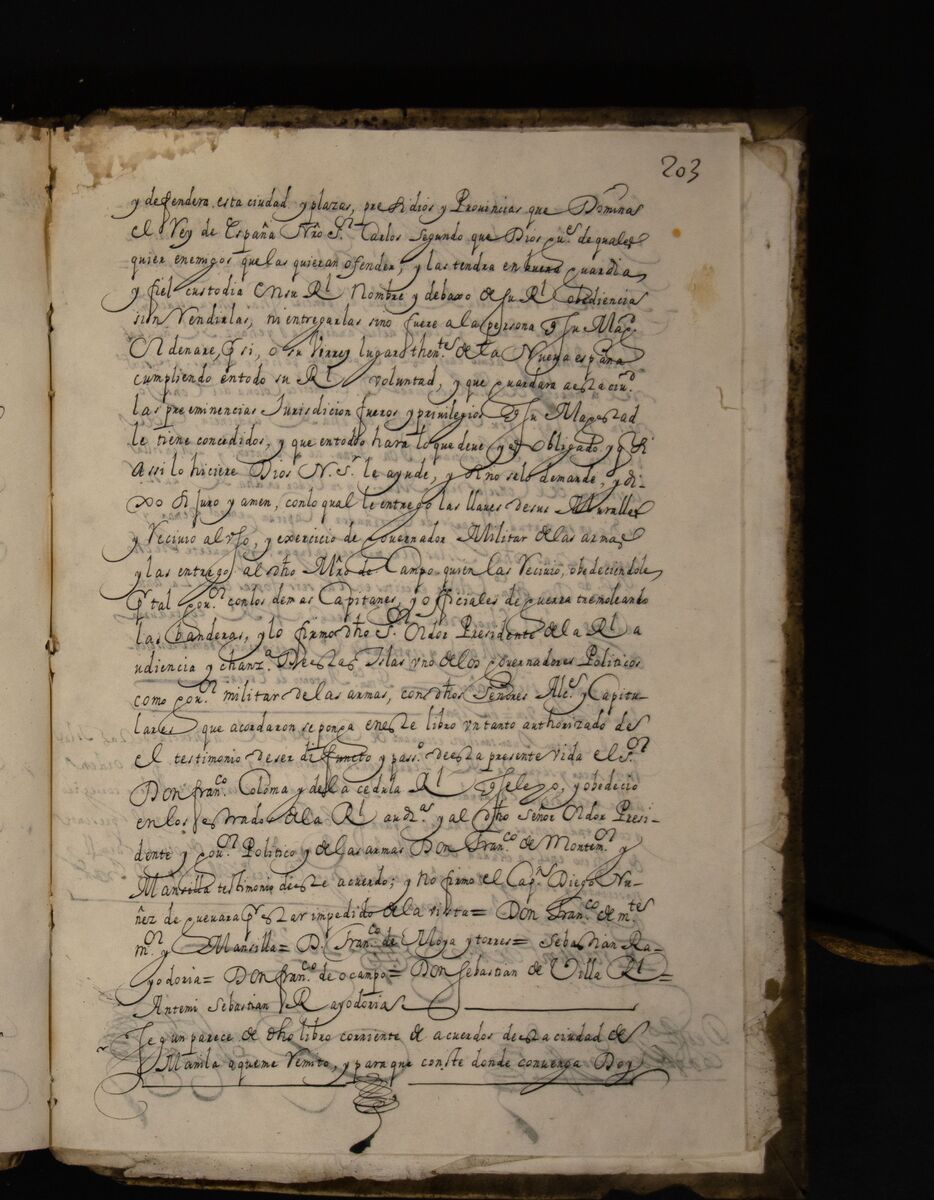 203
y defendera esta ciudad y plazas, presidios y Prouincias que Domina
el Rey de España Nrō S.or Carlos segundo que Dios gu.e de quales
quier enemigos que las quieran ofender, y las tendra en buena guardia
y fiel custodia en su R.l Nombre y debaxo de su R.l obediencia
sin Venderlas, ni entregarlas sino fuere a la persona q̄ su Mag.d
ordenare, por si, o su Virrey lugarothen.te de la Nueva españa
cumpliendo entodo su R.l voluntad, y que guardara a esta ciu.d
las preeminencias Jurisdicion fueros y privilegios q̄ su Magestad
le tiene concedidos, y que entodo hara lo que deve y es obligado y q̄ si
assi lo hiciere Dios N. S.r le ayude, y si no se lo demande, y di-
xo si juro y amen, con lo qual le entrego las llaves de sus Murallas
y Reciuio al vso, y exercicio de Gouernador Militar de las armas
y las entrego al dho Mrō de Campo quien las Reciuio, obedeciendole
por tal gou.or con los demas Capitanes, y officiales de guerra tremoleando
las banderas, y lo firmo dho S.or Oidor Presidente de la R.l a
udiencia y chanz.a De estas Islas vno de los gouernadores Politicos
como gou.or militar de las armas, con dhos Señores Alc.es y Capitu-
lares que acordaron se ponga en este libro vn tanto authorizado de
el testimonio de ser difuncto y pass.o de esta presente vida el S.or
Don fran.co Coloma y de la cedula R.l q̄ se leyo, y obedecio
en los estrados de la R.l aud.a y al dho Señor Oidor Presi-
dente y gou.or Politico y de las armas Don Fran.co de Montem.or y
Mansilla testimonio de este acuerdo; y no firmo el Cap.n Diego Nu-
ñez de gueuara por estar impedido de la vista= Don Fran.co de mte
m.or y Mansilla= D. Fran.co de Moya y torres= Sebastian Ra-
yodoria= Don fran.co de ocampo= Don Sebastian de Villa R.l=
Antemi Sebastian Rayodoria
Segun parece de dho libro corriente de acuerdos de esta ciudad de
Manila aqueme Remito, y para que conste donde convenga Doy